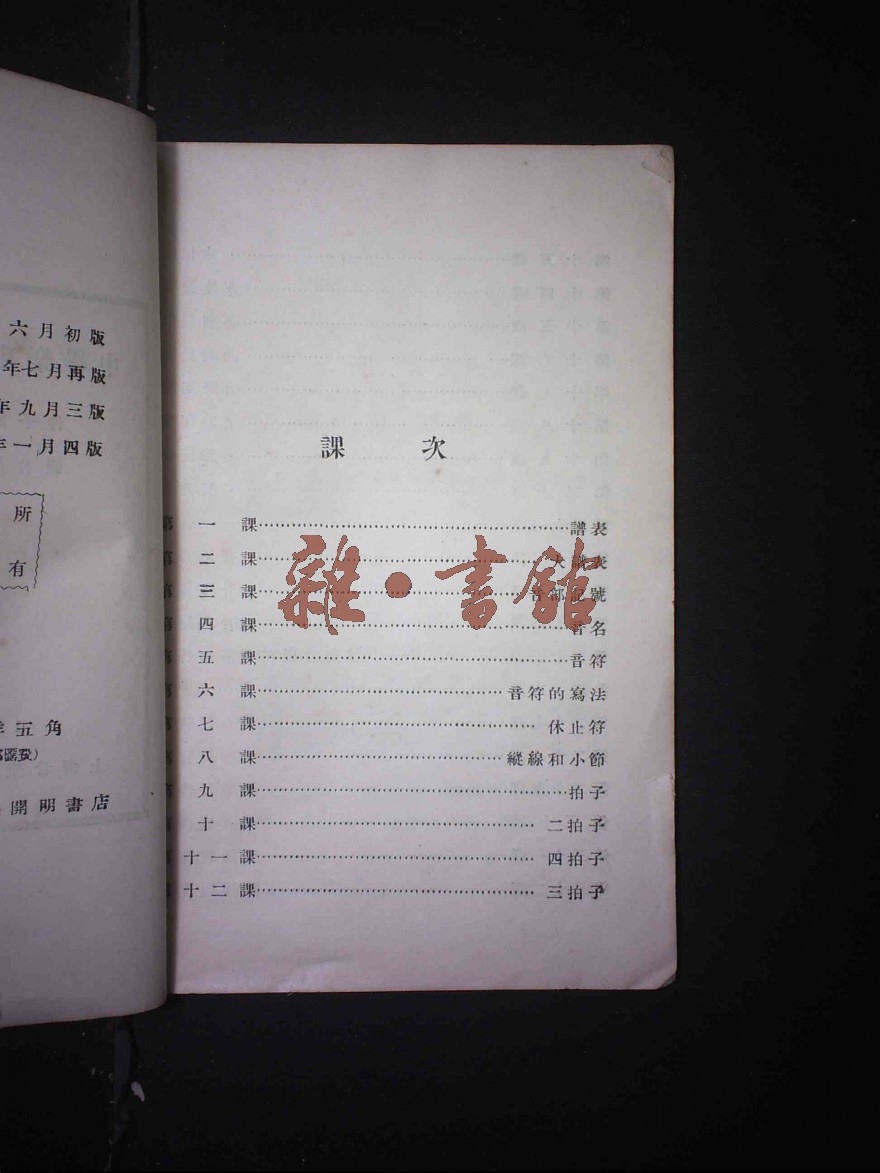 六月初版
年七月再版
年九月三版
年一月四版
所
有
五角
開明書店
課次
第一課……譜表
第二課……大譜表
第三課……音部記號
第四課……音名
第五課……音符
第六課……音符的寫法
第七課……休止符
第八課……縱線和小節
第九課……拍子
第十課……二拍子
十一課……四拍子
十二課……三拍子
雜·書館